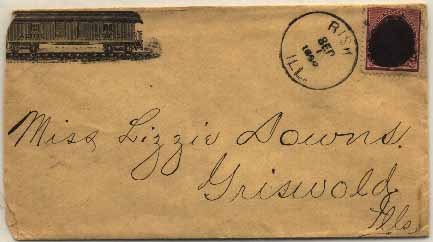 RISH
SEP
1
1890
ILL.
Miss Lizzie Downs.
Griswold
Ills.